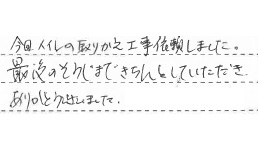 今回トイレの取りかえ工事依頼しました。
最後のそうじまできちんとしていただき
ありがとうございました.